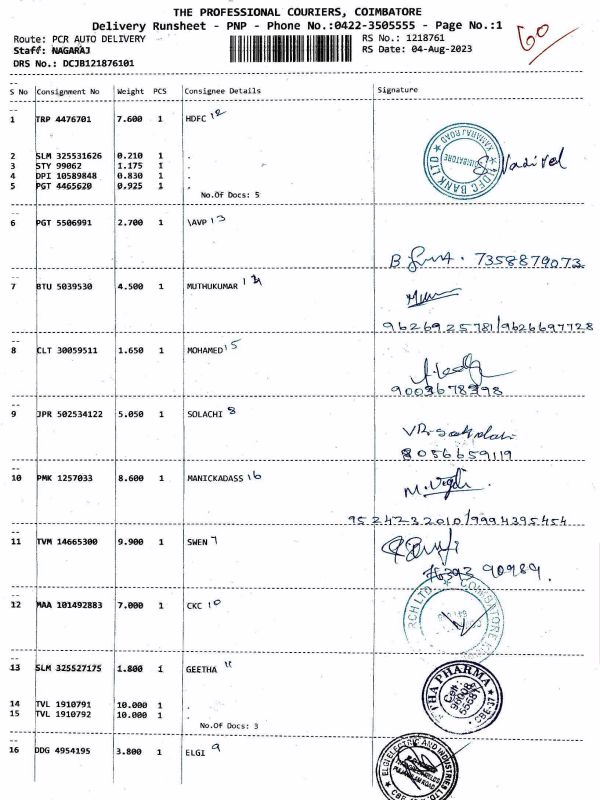 THE PROFESSIONAL COURIERS, COIMBATORE
Delivery Runsheet - PNP - Phone No.:0422-3505555 - Page No.:1
Route: PCR AUTO DELIVERY RS No.: 1218761 60
Staff: NAGARAJ RS Date: 04-Aug-2023
DRS No.: DCJB121876101
S No Consignment No Weight PCS Consignee Details Signature
1 TRP 4476701 7.600 1 HDFC 12
HDFC BANK LTD KAMARAJ ROAD COIMBATORE
2 SLM 325531626 0.210 1 .
3 STY 99062 1.175 1 .
4 DPI 10589848 0.830 1 .
5 PGT 4465620 0.925 1 .
No.Of Docs: 5
6 PGT 5506991 2.700 1 \AVP 13
B 7358879073
7 BTU 5039530 4.500 1 MUTHUKUMAR 14
9626925781/9626697728
8 CLT 30059511 1.650 1 MOHAMED 15
9003678398
9 JPR 502534122 5.050 1 SOLACHI 8
8056659119
10 PMK 1257033 8.600 1 MANICKADASS 16
9524232010/9994395454
11 TVM 14665300 9.900 1 SWEN 7
76393 90989.
12 MAA 101492883 7.000 1 CKC 10
RCH LTD COIMBATORE
13 SLM 325527175 1.800 1 GEETHA 11
PHARMA CBE-37
14 TVL 1910791 10.000 1 .
15 TVL 1910792 10.000 1 .
No.Of Docs: 3
16 DDG 4954195 3.800 1 ELGI 9
ELGI ELECTRIC AND INDUSTRIES LTD